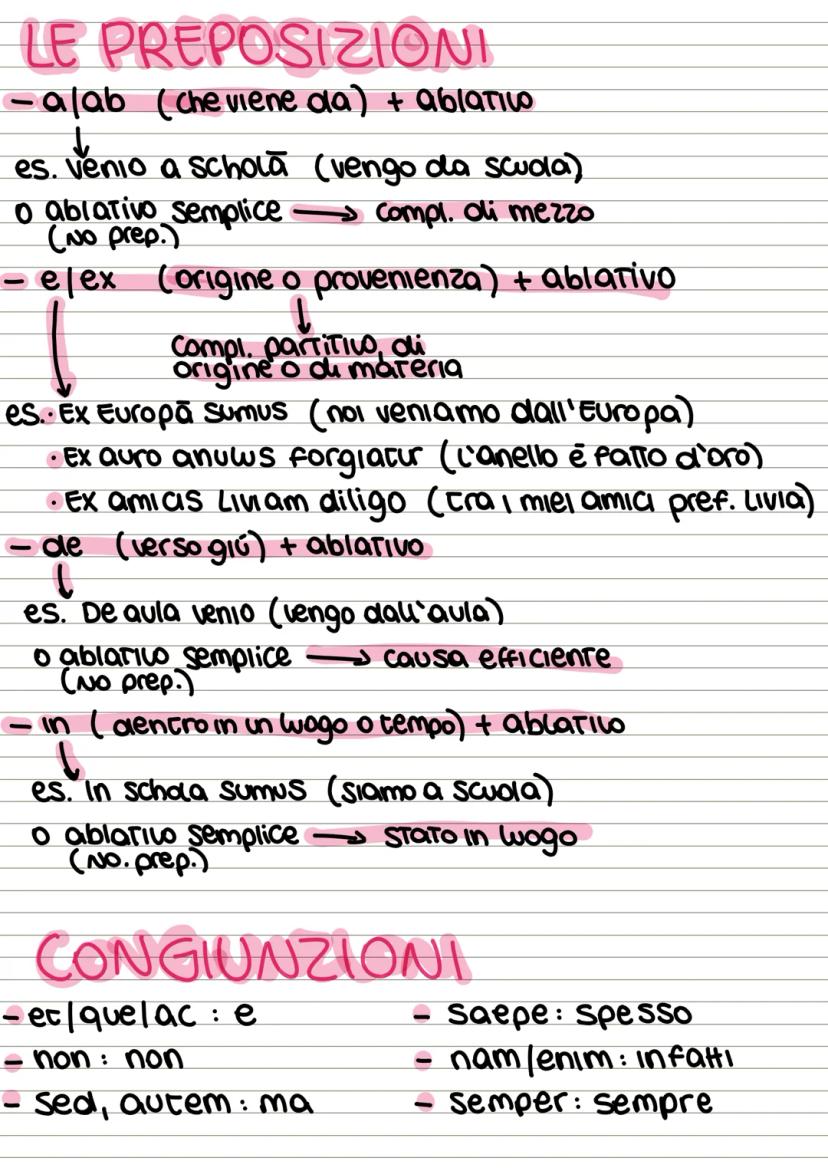 LE PREPOSIZIONI
- a/ab (che viene da) + ablativo
es. Venio a scholā (vengo da scuola)
o ablativo semplice → compl. di mezzo
(No prep.)
- e/ex (origine o provenienza) + ablativo
compl. partitivo, di
origine o di materia
es. · Ex Europā sumus (noi veniamo dall'Europa)
· Ex auro anulus forgiatur (l'anello è fatto d'oro)
· Ex amicis Liviam diligo (tra i miei amici pref. Livia)
- de (verso giú) + ablativo
es. De aula venio (vengo dall'aula)
o ablativo semplice → causa efficiente
(No prep.)
- in (dentro in un luogo o tempo) + ablativo
es. In schola sumus (siamo a scuola)
o ablativo semplice → stato in luogo
(No. prep.)
CONGIUNZIONI
- et/que/ac : e
- non : non
- sed, autem : ma
- saepe : spesso
- nam/enim : infatti
- semper : sempre